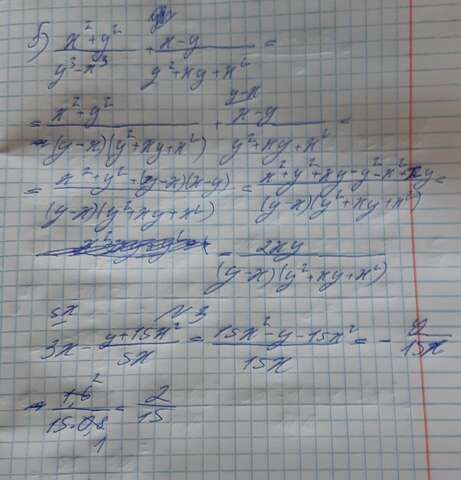 б) (x²+y²)/(y³-x³) + (x-y)/(y²+xy+x²) =
= (x²+y²)/((y-x)(y²+xy+x²)) + (x-y)/(y²+xy+x²) =
y-x
= (x²+y²+(y-x)(x-y))/((y-x)(y²+xy+x²)) = (x²+y²+xy-y²-x²+xy)/((y-x)(y²+xy+x²)) =
= 2xy/((y-x)(y²+xy+x²))
№3
5x
3x - (y+15x²)/5x = (15x²-y-15x²)/15x = - y/15x
= 1,6 2/15·0,8 1 = 2/15